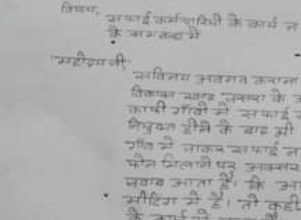 विषय, सफाई कर्मचारियों के कार्य न
के सम्बन्ध में
महोदय जी,
सविनय अवगत कराना
विकास खण्ड के
काफी गाँवों में सफाई
नियुक्त होने के बाद भी
गाँव में जाकर सफाई न
फोन मिलाने पर अक्सर
जवाब आता है। कि
मीटिंग में है। तो कही
के कार्य